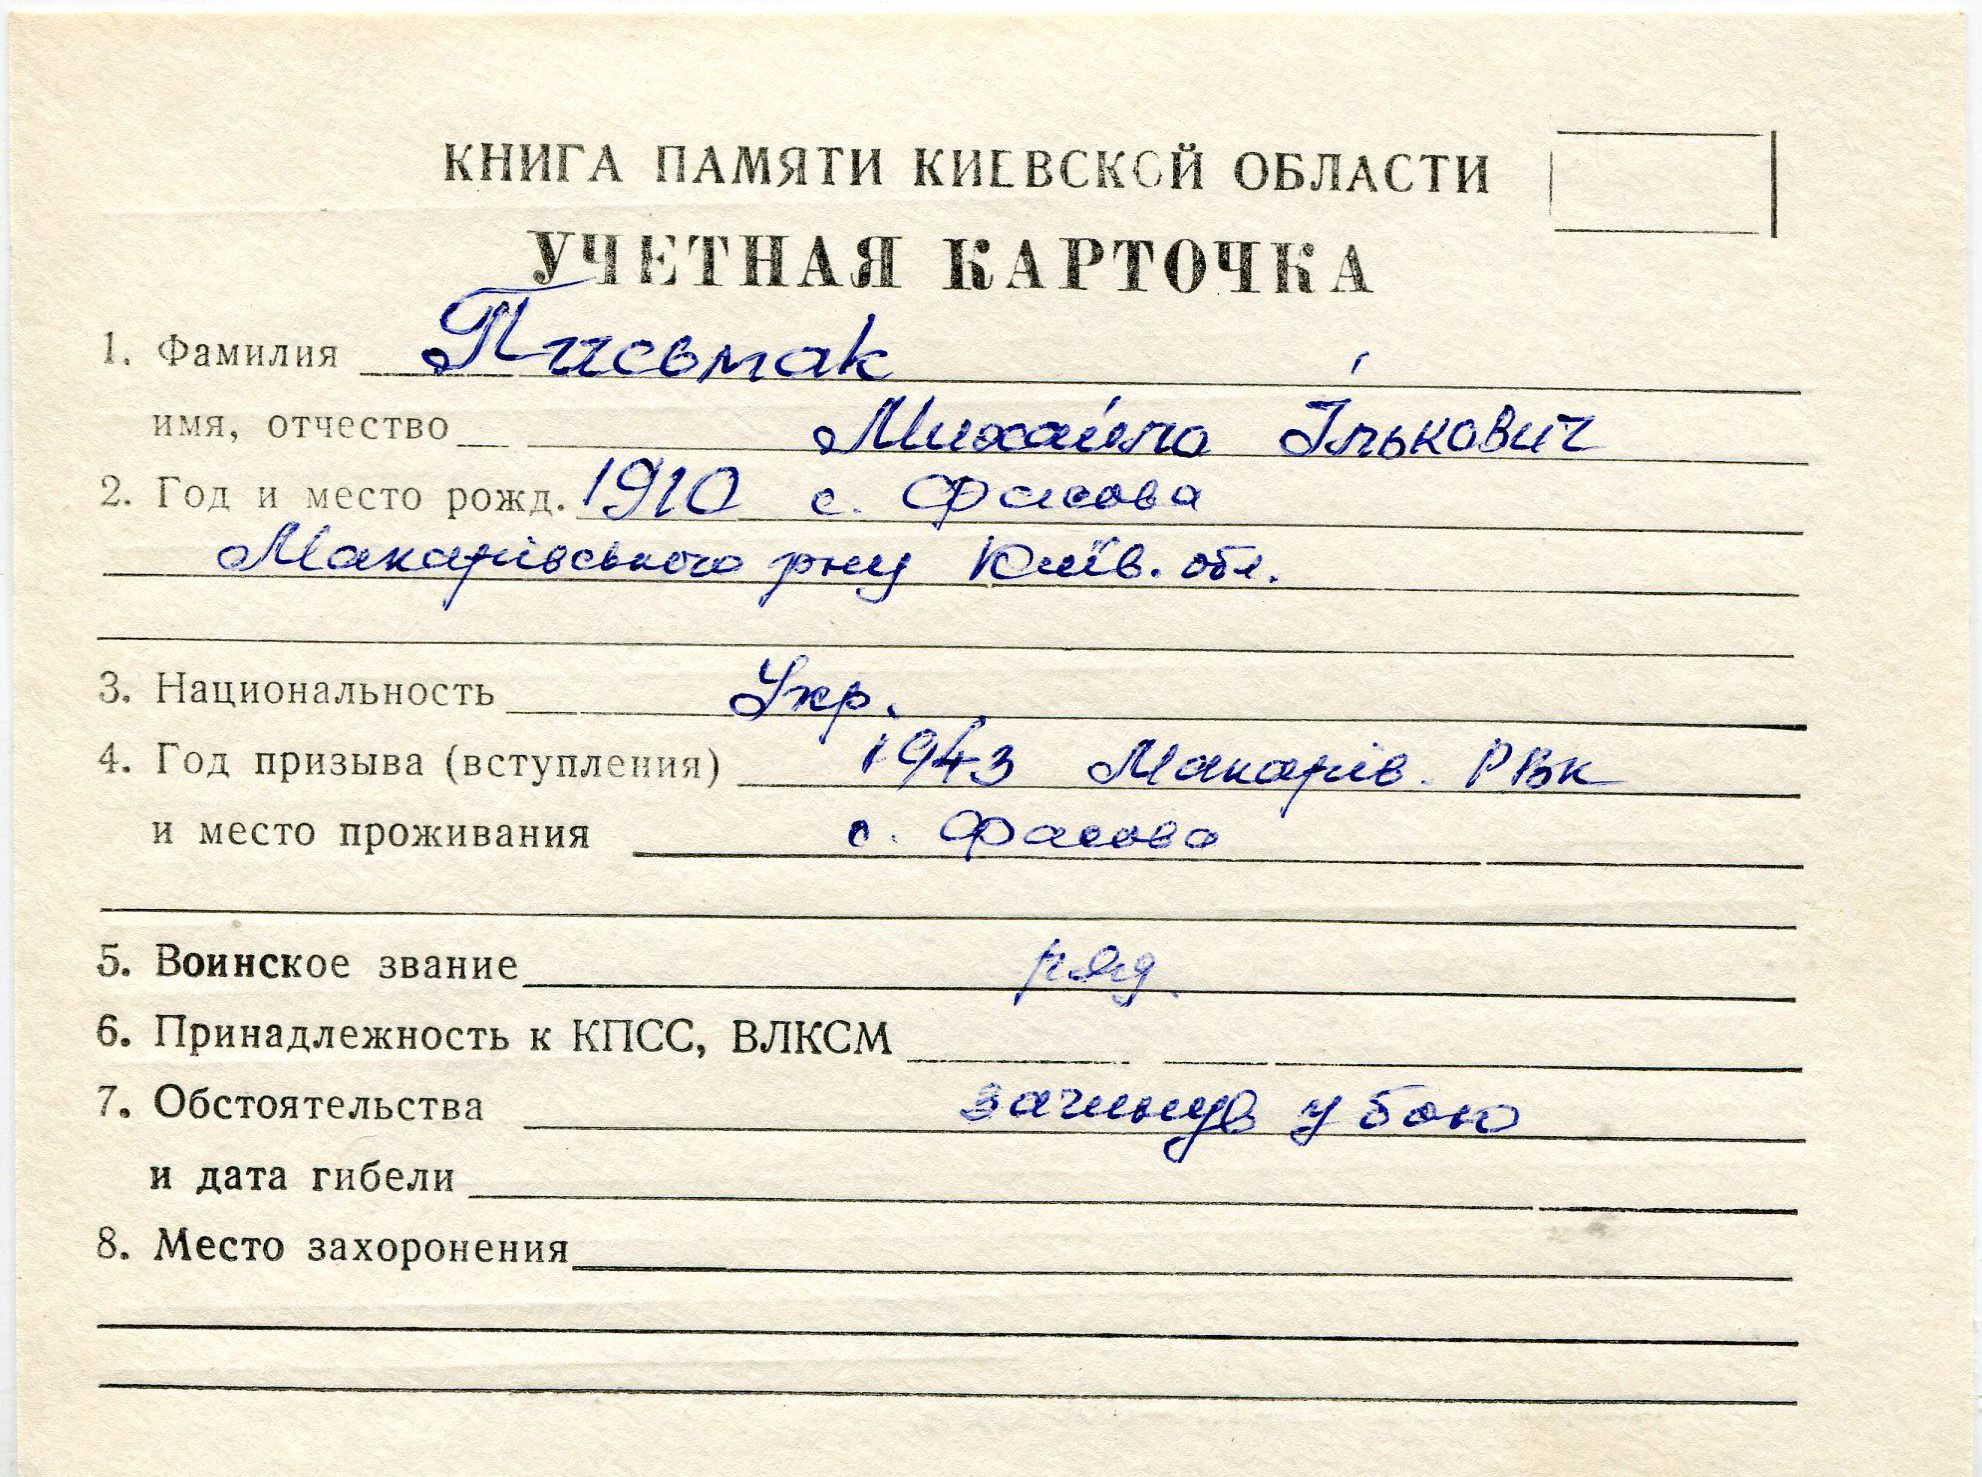 КНИГА ПАМЯТИ КИЕВСКОЙ ОБЛАСТИ
УЧЕТНАЯ КАРТОЧКА
1. Фамилия Письмак
имя, отчество Михайло Ількович
2. Год и место рожд. 1910 с. Фасова
Макарівського рну Київ. обл.
3. Национальность Укр.
4. Год призыва (вступления) 1943 Макарів. РВК
и место проживания с. Фасова
5. Воинское звание ряд.
6. Принадлежность к КПСС, ВЛКСМ
7. Обстоятельства загинув у бою
и дата гибели
8. Место захоронения